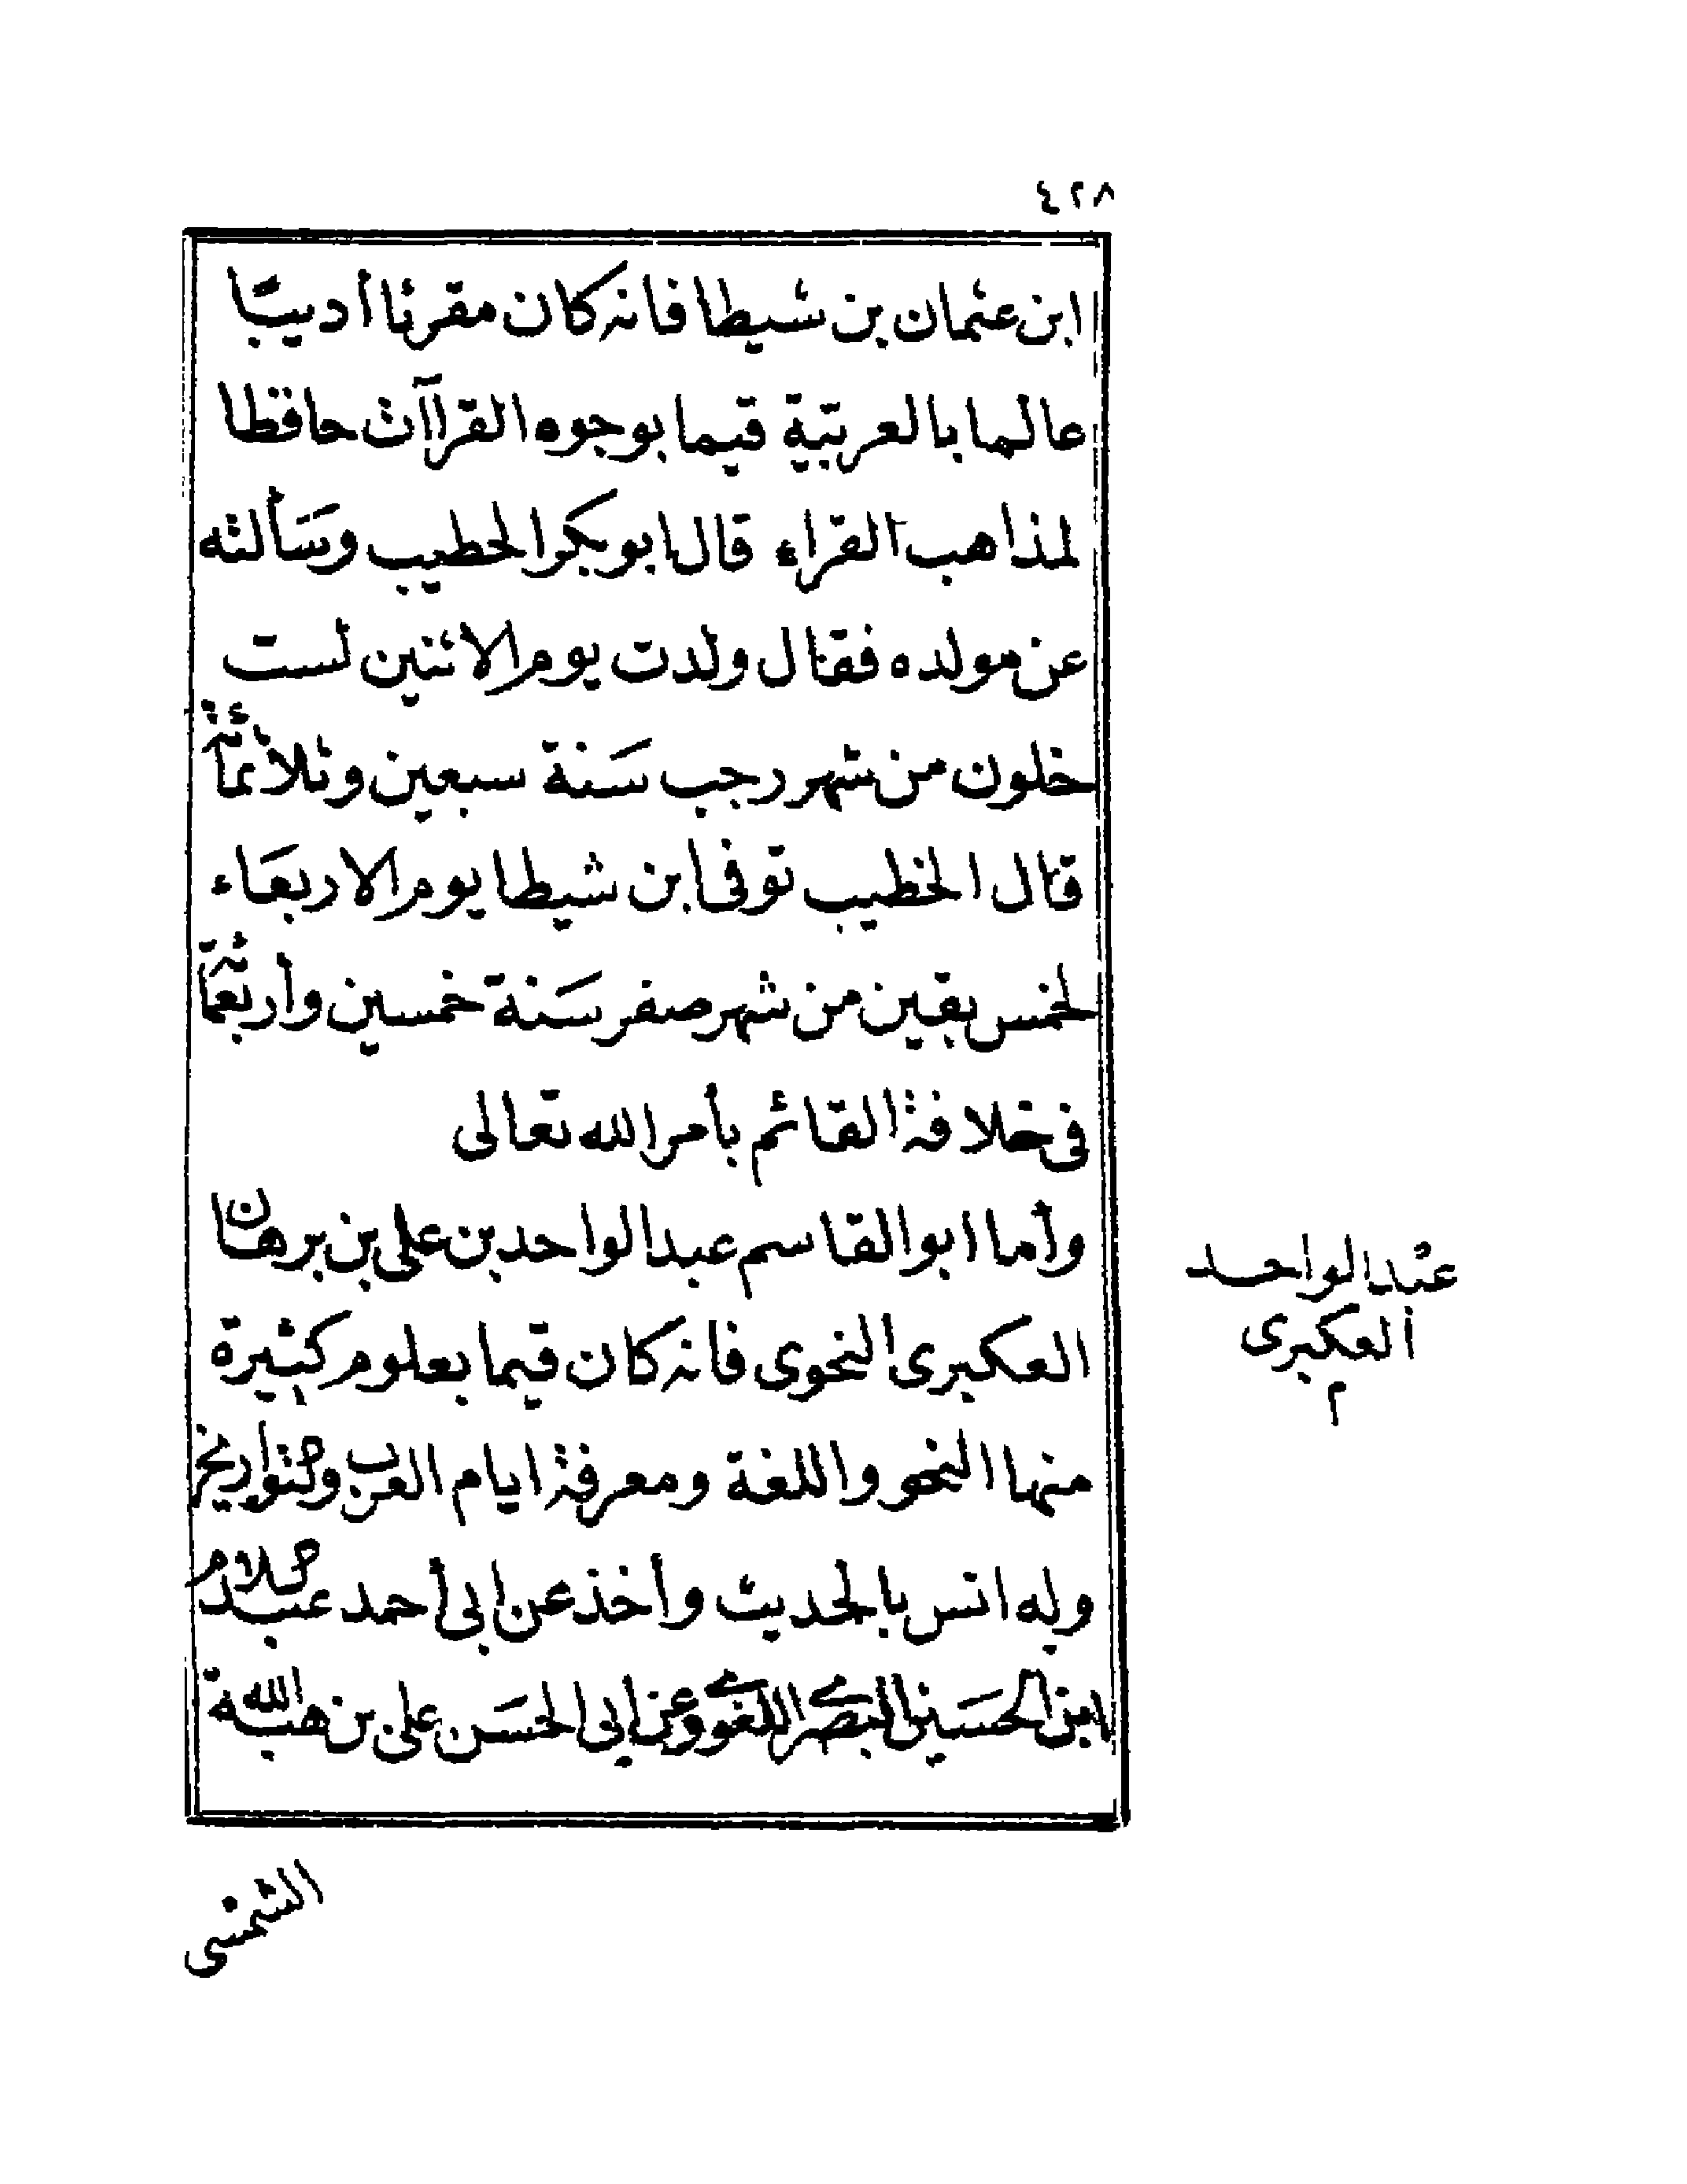 ٤٢٨
ابن عثمان بن شيطا فانه كان مقرئا أديبًا
عالما بالعربيّة قيما بوجوه القراآت حافظا
لمذاهب القراء قال ابو بكر الخطيب وسَألته
عن مولده فقال ولدت يوم الاثنين لست
خلون من شهر رجب سَنة سبعين وثلاثمائة
قال الخطيب توفى ابن شيطا يوم الاربعَاء
لخمس بقين من شهر صفر سَنة خمسين وأربعمائة
فى خلافة القائم بأمر الله تعالى
وأما ابو القاسم عبد الواحد بن على بن برهان
العكبرى النحوى فانه كان قيما بعلوم كثيرة
منها النحو واللغة ومعرفة ايام العرب والتواريخ
وله انس بالحديث وأخذ عن ابى أحمد عبد السلام
ابن الحسَين البصرى اللغوى وعن ابى الحسَن على بن هبة الله
عبد الواحد
العكبرى
م